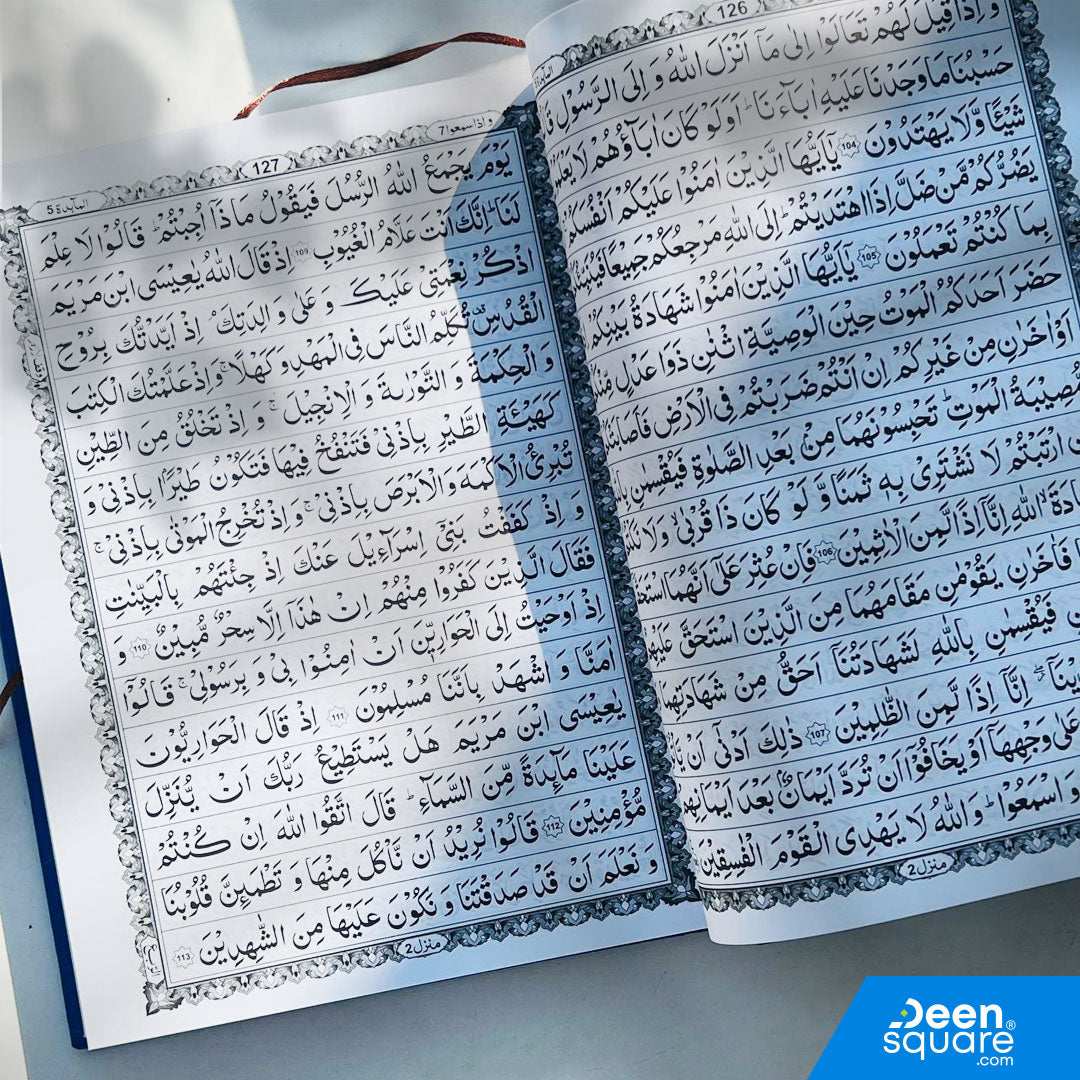 126
وَ اِذَا قِيْلَ لَهُمْ تَعَالَوْا اِلٰى مَاۤ اَنْزَلَ اللّٰهُ وَ اِلَى الرَّسُوْلِ
حَسْبُنَا مَا وَجَدْنَا عَلَيْهِ اٰبَآءَنَا ؕ اَوَ لَوْ كَانَ اٰبَآؤُهُمْ لَا
شَيْـًٔا وَّ لَا يَهْتَدُوْنَ 104 يٰۤاَيُّهَا الَّذِيْنَ اٰمَنُوْا عَلَيْكُمْ
يَضُرُّكُمْ مَّنْ ضَلَّ اِذَا اهْتَدَيْتُمْ ؕ اِلَى اللّٰهِ مَرْجِعُكُمْ جَمِيْعًا
بِمَا كُنْتُمْ تَعْمَلُوْنَ 105 يٰۤاَيُّهَا الَّذِيْنَ اٰمَنُوْا شَهَادَةُ بَيْنِكُمْ
حَضَرَ اَحَدَكُمُ الْمَوْتُ حِيْنَ الْوَصِيَّةِ اثْنٰنِ ذَوَا عَدْلٍ
اَوْ اٰخَرٰنِ مِنْ غَيْرِكُمْ اِنْ اَنْتُمْ ضَرَبْتُمْ فِى الْاَرْضِ
مُّصِيْبَةُ الْمَوْتِ ؕ تَحْبِسُوْنَهُمَا مِنْۢ بَعْدِ الصَّلٰوةِ فَيُقْسِمٰنِ
ارْتَبْتُمْ لَا نَشْتَرِىْ بِهٖ ثَمَنًا وَّ لَوْ كَانَ ذَا قُرْبٰى ۙ وَ لَا
اللّٰهِ اِنَّاۤ اِذًا لَّمِنَ الْاٰثِمِيْنَ 106 فَاِنْ عُثِرَ عَلٰۤى اَنَّهُمَا
فَاٰخَرٰنِ يَقُوْمٰنِ مَقَامَهُمَا مِنَ الَّذِيْنَ اسْتَحَقَّ
فَيُقْسِمٰنِ بِاللّٰهِ لَشَهَادَتُنَاۤ اَحَقُّ مِنْ شَهَادَتِهِمَا
اِنَّاۤ اِذًا لَّمِنَ الظّٰلِمِيْنَ 107 ذٰلِكَ اَدْنٰۤى اَنْ
عَلٰى وَجْهِهَاۤ اَوْ يَخَافُوْۤا اَنْ تُرَدَّ اَيْمَانٌۢ بَعْدَ اَيْمَانِهِمْ
وَ اسْمَعُوْا ؕ وَ اللّٰهُ لَا يَهْدِى الْقَوْمَ الْفٰسِقِيْنَ
منزل 2
و اذا سمعوا 7
127
المآىِٕدة 5
يَوْمَ يَجْمَعُ اللّٰهُ الرُّسُلَ فَيَقُوْلُ مَاذَاۤ اُجِبْتُمْ ؕ قَالُوْا لَا عِلْمَ
لَنَا ؕ اِنَّكَ اَنْتَ عَلَّامُ الْغُيُوْبِ 109 اِذْ قَالَ اللّٰهُ يٰعِيْسَى ابْنَ مَرْيَمَ
اذْكُرْ نِعْمَتِىْ عَلَيْكَ وَ عَلٰى وَالِدَتِكَ ۘ اِذْ اَيَّدْتُّكَ بِرُوْحِ
الْقُدُسِ تُكَلِّمُ النَّاسَ فِى الْمَهْدِ وَ كَهْلًا ۚ وَ اِذْ عَلَّمْتُكَ الْكِتٰبَ
وَ الْحِكْمَةَ وَ التَّوْرٰىةَ وَ الْاِنْجِيْلَ ۚ وَ اِذْ تَخْلُقُ مِنَ الطِّيْنِ
كَهَيْـَٔةِ الطَّيْرِ بِاِذْنِىْ فَتَنْفُخُ فِيْهَا فَتَكُوْنُ طَيْرًۢا بِاِذْنِىْ وَ
تُبْرِئُ الْاَكْمَهَ وَ الْاَبْرَصَ بِاِذْنِىْ ۚ وَ اِذْ تُخْرِجُ الْمَوْتٰى بِاِذْنِىْ ۚ
وَ اِذْ كَفَفْتُ بَنِىْۤ اِسْرَآءِيْلَ عَنْكَ اِذْ جِئْتَهُمْ بِالْبَيِّنٰتِ
فَقَالَ الَّذِيْنَ كَفَرُوْا مِنْهُمْ اِنْ هٰذَاۤ اِلَّا سِحْرٌ مُّبِيْنٌ 110 وَ
اِذْ اَوْحَيْتُ اِلَى الْحَوَارِيّٖنَ اَنْ اٰمِنُوْا بِىْ وَ بِرَسُوْلِىْ ۚ قَالُوْۤا
اٰمَنَّا وَ اشْهَدْ بِاَنَّنَا مُسْلِمُوْنَ 111 اِذْ قَالَ الْحَوَارِيُّوْنَ
يٰعِيْسَى ابْنَ مَرْيَمَ هَلْ يَسْتَطِيْعُ رَبُّكَ اَنْ يُّنَزِّلَ
عَلَيْنَا مَآىِٕدَةً مِّنَ السَّمَآءِ ؕ قَالَ اتَّقُوا اللّٰهَ اِنْ كُنْتُمْ
مُّؤْمِنِيْنَ 112 قَالُوْا نُرِيْدُ اَنْ نَّاْكُلَ مِنْهَا وَ تَطْمَىِٕنَّ قُلُوْبُنَا
وَ نَعْلَمَ اَنْ قَدْ صَدَقْتَنَا وَ نَكُوْنَ عَلَيْهَا مِنَ الشّٰهِدِيْنَ 113
منزل 2
Deen
square®
.com